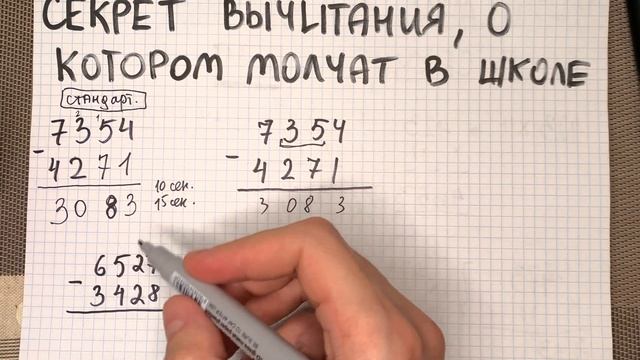 СЕКРЕТ ВЫЧИТАНИЯ, О
КОТОРОМ МОЛЧАТ В ШКОЛЕ
СТАНДАРТ.
2 1
7354
- 4271
3083
10 сек.
15 сек.
7354
- 4271
3 08 3
652
- 3428